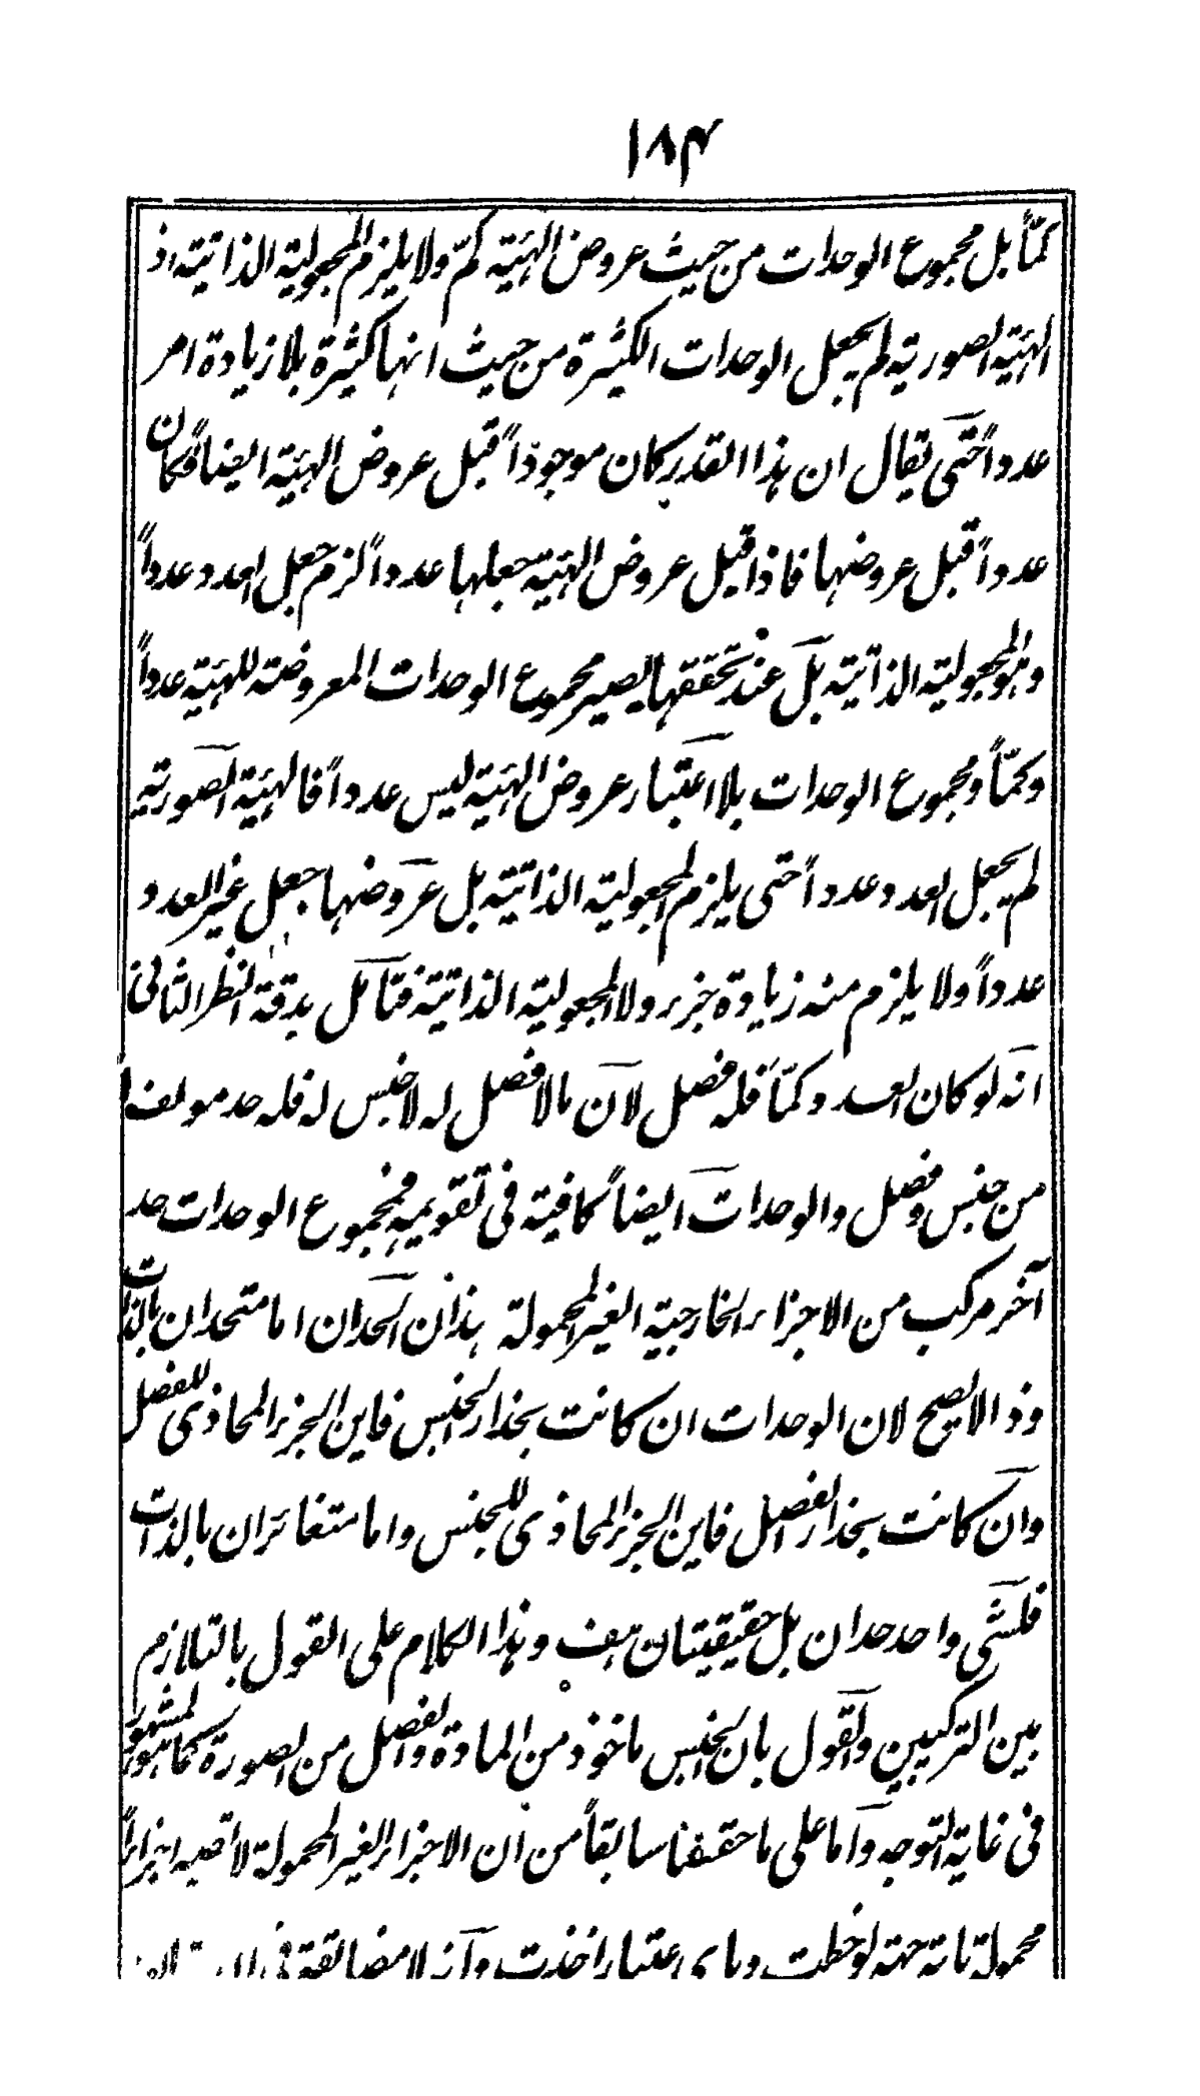 ١٨٤
كمّاً بل مجموع الوحدات من حيث عروض الهيئة كمّ ولا يلزم المجعولية الذاتية اذ
الهيئة الصورية لم يجعل الوحدات الكثيرة من حيث انها كثيرة بلا زيادة امر
عدداً حتى يقال ان هذا القدر كان موجوداً قبل عروض الهيئة ايضاً فكان
عدداً قبل عروضها فاذا قيل عروض الهيئة جعلها عدداً لزم جعل العدد عدداً
وهو المجعولية الذاتية بل عند تحققها يصير مجموع الوحدات المعروضة للهيئة عدداً
وكمّاً ومجموع الوحدات بلا اعتبار عروض الهيئة ليس عدداً فالهيئة الصورية
لم يجعل العدد عدداً حتى يلزم المجعولية الذاتية بل عروضها جعل غير العدد
عدداً ولا يلزم منه زيادة جزء ولا المجعولية الذاتية فتأمل بدقة النظر الثاني
انه لو كان العدد كمّاً فله فصل لان ما لا فصل له لا جنس له فله حد مولف
من جنس وفصل والوحدات ايضاً كافية في تقويمه فمجموع الوحدات حد
آخر مركب من الاجزاء الخارجية الغير المحمولة هذان الحدان اما متحدان بالذات
وذا لا يصح لان الوحدات ان كانت بحذاء الجنس فاين الجزء المحاذى للفصل
وان كانت بحذاء الفصل فاين الجزء المحاذى للجنس واما متغائران بالذات
فلشئ واحد حدان بل حقيقيتان هف وهذا الكلام على القول بالتلازم
بين التركيبين والقول بان الجنس ماخوذ من المادة والفصل من الصورة كما هو المشهور
فى غاية التوجه واما على ما حققنا سابقاً من ان الاجزاء الغير المحمولة لا تصير اجزاءً
محمولة باية جهة لوحظت وباى اعتبار اخذت وانه لا مضائقة فى